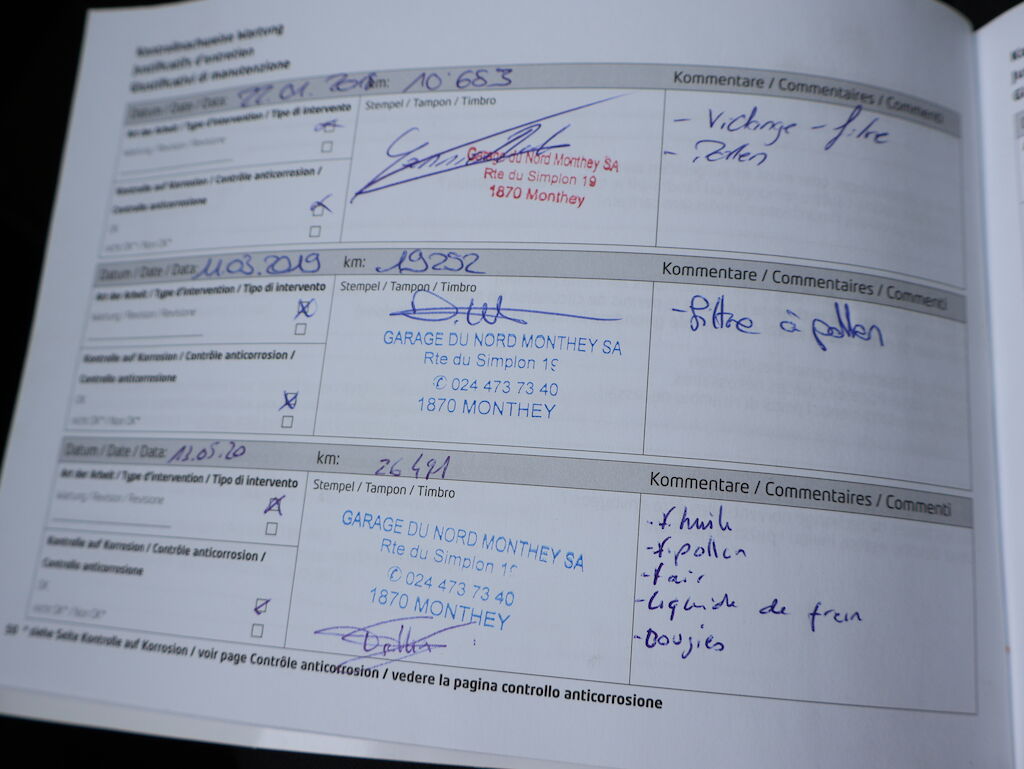 Kontrollnachweise Wartung
Justificatifs d'entretien
Giustificativi di manutenzione
Datum / Date / Data: 22.01.2018 km: 10'683 Kommentare / Commentaires / Commenti
Art der Arbeit / Type d'intervention / Tipo di intervento
Wartung / Revision / Revisione
Stempel / Tampon / Timbro
Garage du Nord Monthey SA
Rte du Simplon 19
1870 Monthey
- Vidange - filtre
- Pollen
Kontrolle auf Korrosion / Contrôle anticorrosion /
Controllo anticorrosione
OK
nicht OK* / Non OK*
Datum / Date / Data: 11.03.2019 km: 19252 Kommentare / Commentaires / Commenti
Art der Arbeit / Type d'intervention / Tipo di intervento
Wartung / Revision / Revisione
Stempel / Tampon / Timbro
GARAGE DU NORD MONTHEY SA
Rte du Simplon 19
✆ 024 473 73 40
1870 MONTHEY
- filtre à pollen
Kontrolle auf Korrosion / Contrôle anticorrosion /
Controllo anticorrosione
OK
nicht OK* / Non OK*
Datum / Date / Data: 13.05.20 km: 26491 Kommentare / Commentaires / Commenti
Art der Arbeit / Type d'intervention / Tipo di intervento
Wartung / Revision / Revisione
Stempel / Tampon / Timbro
GARAGE DU NORD MONTHEY SA
Rte du Simplon
✆ 024 473 73 40
1870 MONTHEY
- f. huile
- f. pollen
- f air
- Liquide de frein
- Bougies
Kontrolle auf Korrosion / Contrôle anticorrosion /
Controllo anticorrosione
OK
nicht OK* / Non OK*
* siehe Seite Kontrolle auf Korrosion / voir page Contrôle anticorrosion / vedere la pagina controllo anticorrosione